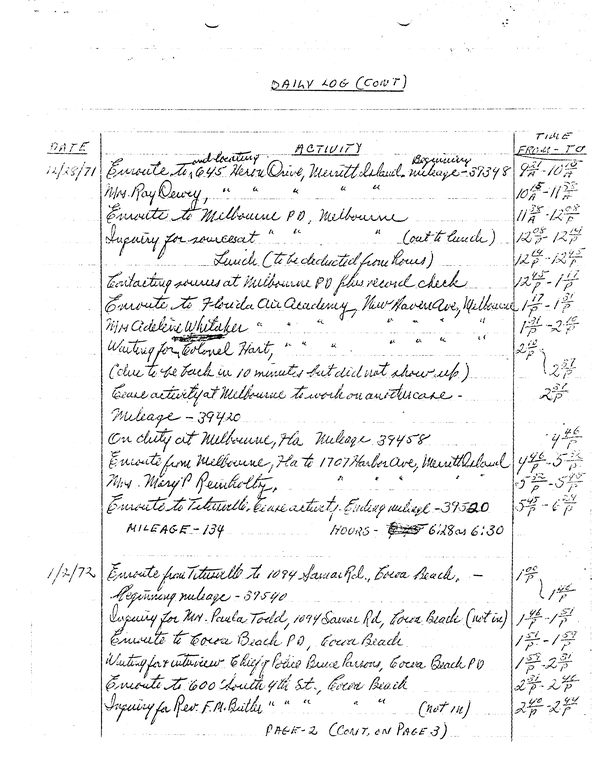 DAILY LOG (CONT)
DATE ACTIVITY TIME FROM - TO
and locating Beginning
12/28/71 Enroute to 645 Heron Drive, Merritt Island. mileage - 39348 9 31/A - 10 15/A
Mrs. Ray Dewey, " " " " 10 15/A - 11 38/A
Enroute to Melbourne PD, Melbourne 11 38/A - 12 08/P
Inquiry for sources at " " " (out to lunch) 12 08/P - 12 14/P
Lunch (to be deducted from hours) 12 14/P - 12 45/P
Contacting sources at Melbourne PD plus record check 12 45/P - 1 17/P
Enroute to Florida Air Academy, New Haven Ave, Melbourne 1 17/P - 1 31/P
Mrs Adeline Whitaker " " " " " " " 1 31/P - 2 10/P
Waiting for Colonel Hart, " " " " " " 2 10/P
(due to be back in 10 minutes but did not show up) 2 51/P
Cease activity at Melbourne to work on another case - 2 51/P
Mileage - 39420
On duty at Melbourne, Fla Mileage 39458 - 4 46/P
Enroute from Melbourne, Fla to 1707 Harbor Ave, Merritt Island 4 46/P - 5 32/P
Mrs. Mary P Reinholtz, " " " " 5 32/P - 5 45/P
Enroute to Titusville. Cease activity. Ending mileage - 39520 5 45/P - 6 24/P
MILEAGE - 134 HOURS - 6:28 as 6:30
1/2/72 Enroute from Titusville to 1094 Samar Rd., Cocoa Beach. - 1 00/P
Beginning mileage - 39540 1 46/P
Inquiry for Mr. Paula Todd, 1094 Samar Rd, Cocoa Beach (not in) 1 46/P - 1 51/P
Enroute to Cocoa Beach PD, Cocoa Beach 1 51/P - 1 59/P
Waiting for & interview Chief of Police Bruce Parsons, Cocoa Beach PD 1 59/P - 2 31/P
Enroute to 600 South 4th St., Cocoa Beach 2 31/P - 2 40/P
Inquiry for Rev. F.M. Butler " " " " " (not in) 2 40/P - 2 44/P
PAGE-2 (CONT, ON PAGE 3)